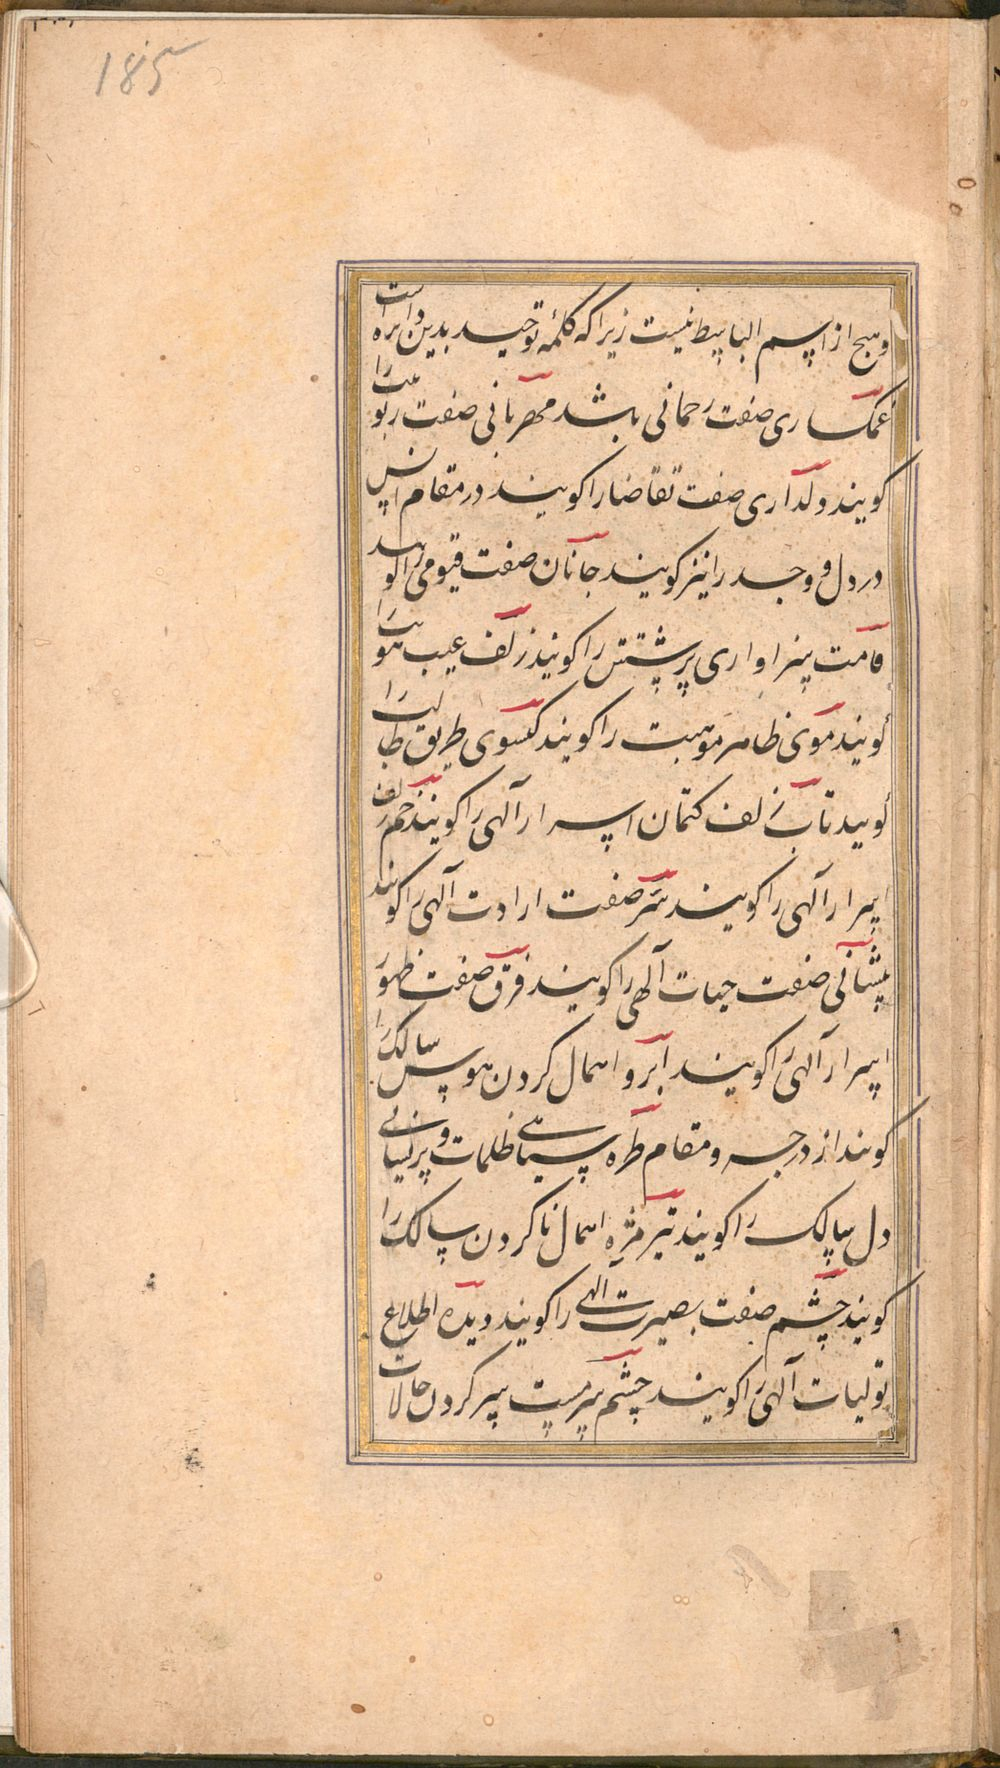 185
و هیچ از اسم الباسط نیست زیرا که کلمه توحید بدین دایره است
غمکساری صفت رحمانی باشد مهربانی صفت ربوبیت را
کویند دلداری صفت تقاضا را کویند در مقام انس
در دل و وجد را نیز کویند جانان صفت قیومی را کویند
قامت سزاواری پرستش را کویند زلف غیب هویت را
کویند موی ظاهر هویت را کویند کیسوی طریق طالب را
کویند تاب زلف کتمان اسرار آلهی را کویند خم زلف
اسرار آلهی را کویند سر صفت ارادت آلهی را کویند
پیشانی صفت حیات آلهی را کویند فرق صفت ظهور
اسرار آلهی را کویند ابرو اهمال کردن هوس سالک را
کویند از درجه و مقام طره سیاهی ظلمات و پریشانی
دل سالک را کویند تیر مژه اهمال ناکردن سالک را
کویند چشم صفت بصیرت الهی را کویند دیده اطلاع
تولیات آلهی را کویند چشم سرمست سیر کردن حالات